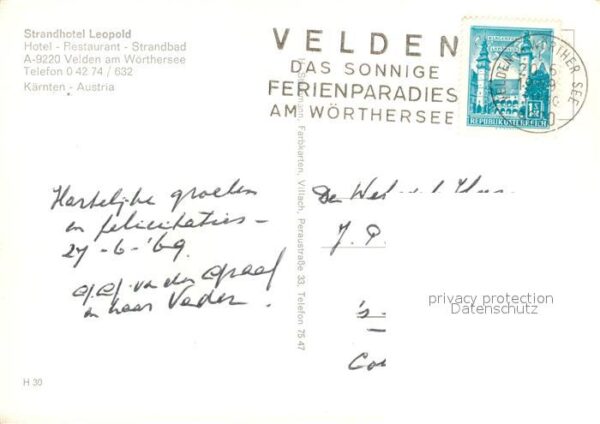 Strandhotel Leopold
Hotel - Restaurant - Strandbad
A-9220 Velden am Wörthersee
Telefon 0 42 74 / 632
Kärnten - Austria
VELDEN
DAS SONNIGE
FERIENPARADIES
AM WÖRTHERSEE
REPUBLIK ÖSTERREICH
Farbkarten, Villach, Peraustraße 33, Telefon 75 47
Hartelijke groeten
en felicitaties -
27-6-'69.
v. der Graaf
en haar Vader.
J. P.
's
privacy protection
Datenschutz
H 30